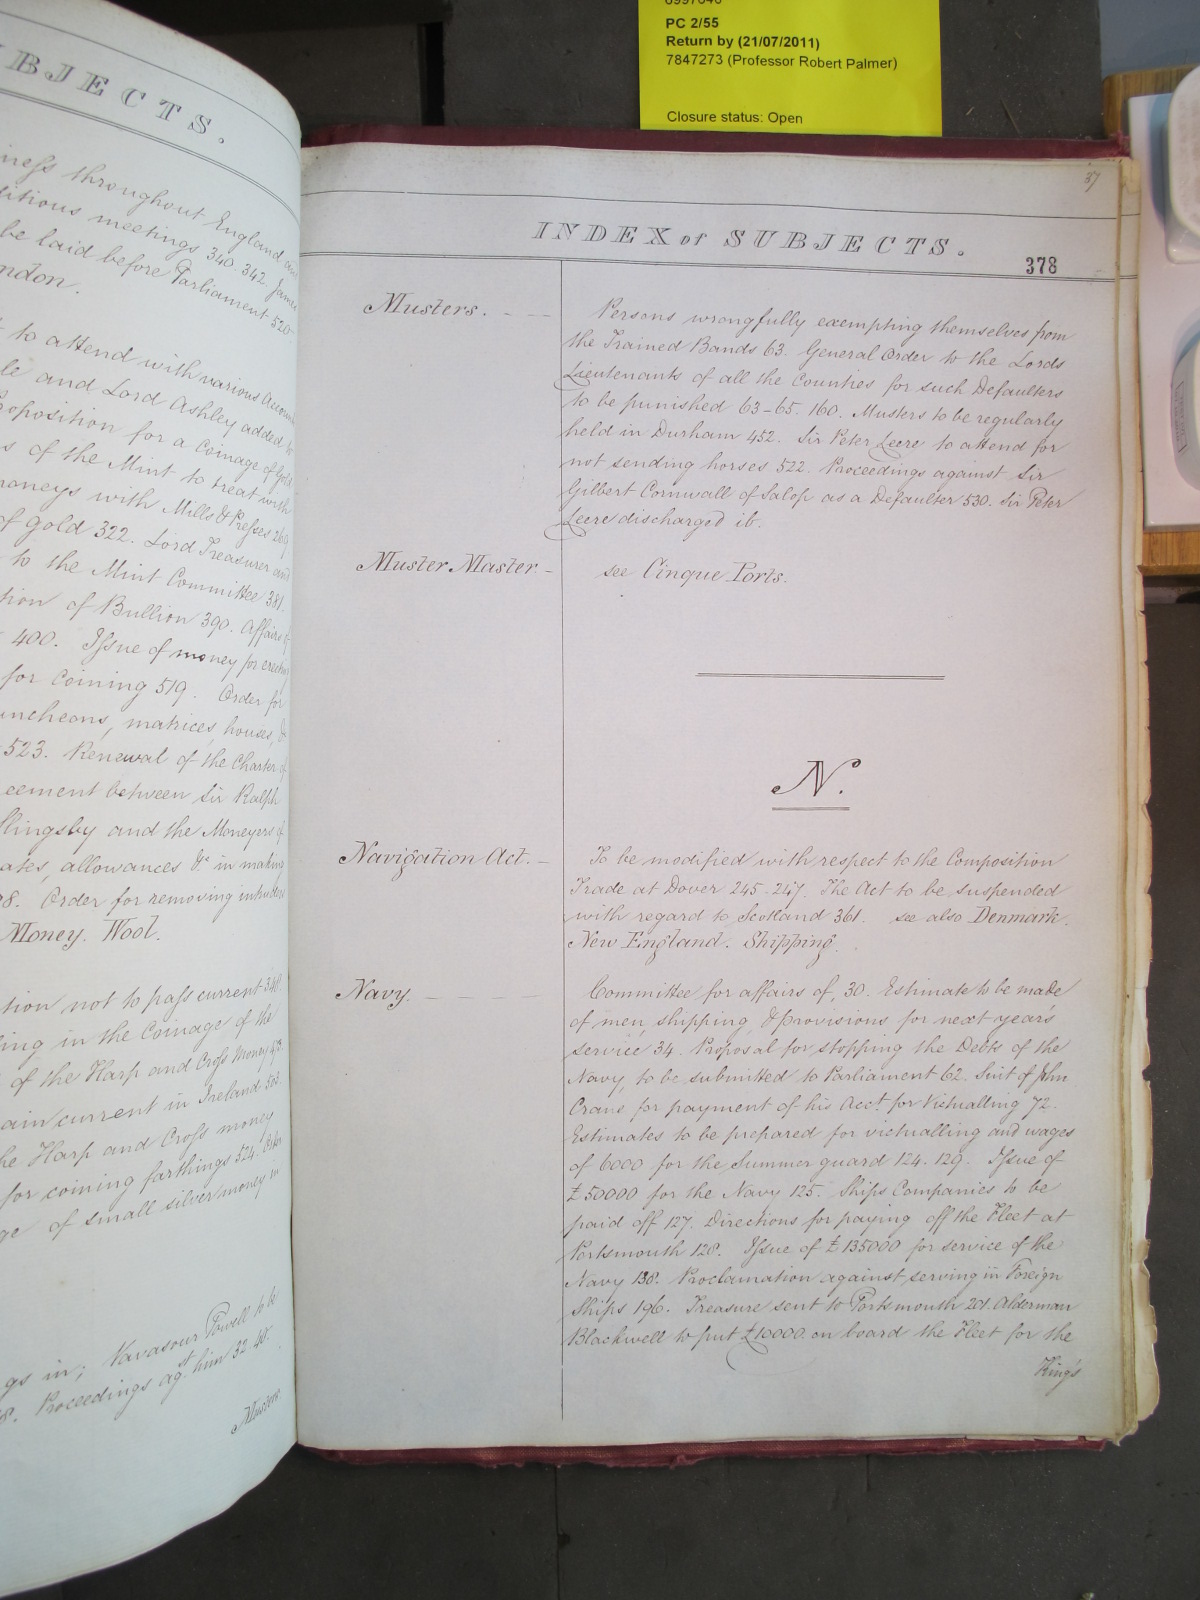 PC 2/55
Return by (21/07/2011)
7847273 (Professor Robert Palmer)
Closure status: Open
BJECTS.
iness throughout England
ditious meetings 340. 342. James
be laid before Parliament 520
ndon.
to attend with various Accou
le and Lord Ashley added to
roposition for a Coinage of Gold
s of the Mint to treat with
moneys with Mills & Presses 269
of Gold 322. Lord Treasurer and
to the Mint Committee 381.
tion of Bullion 390. Affairs of
400. Issue of money for erecti
for Coining 519. Order for
uncheons, matrices, houses, &
523. Renewal of the Charter of
eement between Sir Ralph
llingsby and the Moneyers of
ates, allowances &c in making
98. Order for removing intruders
Money. Wool.
tion not to pass current 348.
ing in the Coinage of the
of the Harp and Cross Money
ain current in Ireland 503.
he Harp and Cross money
for coining farthings 524.
ge of small silver money in
gs in; Vavasour Powell to be
8. Proceedings agst him 32. 48.
Musters.
37
INDEX of SUBJECTS.
378
Musters. - - - Persons wrongfully exempting themselves from
the Trained Bands 63. General Order to the Lords
Lieutenants of all the Counties for such Defaulters
to be punished 63-65. 160. Musters to be regularly
held in Durham 452. Sir Peter Leere to attend for
not sending horses 522. Proceedings against Sir
Gilbert Cornwall of Salop as a Defaulter 530. Sir Peter
Leere discharged ib.
Muster Master - see Cinque Ports.
N.
Navigation Act. - To be modified with respect to the Composition
Trade at Dover 245-247. The Act to be suspended
with regard to Scotland 361. see also Denmark.
New England. Shipping.
Navy. - - - Committee for affairs of, 30. Estimate to be made
of men, shipping, & provisions for next year's
service 34. Proposal for stopping the Debts of the
Navy, to be submitted to Parliament 62. Suit of John
Crane for payment of his Acct. for Victualling 72.
Estimates to be prepared for victualling and wages
of 6000 for the Summer guard 124. 129. Issue of
£50000 for the Navy 125. Ships Companies to be
paid off 127. Directions for paying off the Fleet at
Portsmouth 128. Issue of £135000 for service of the
Navy 138. Proclamation against serving in Foreign
Ships 196. Treasure sent to Portsmouth 201. Alderman
Blackwell to put £10000 on board the Fleet for the
King's